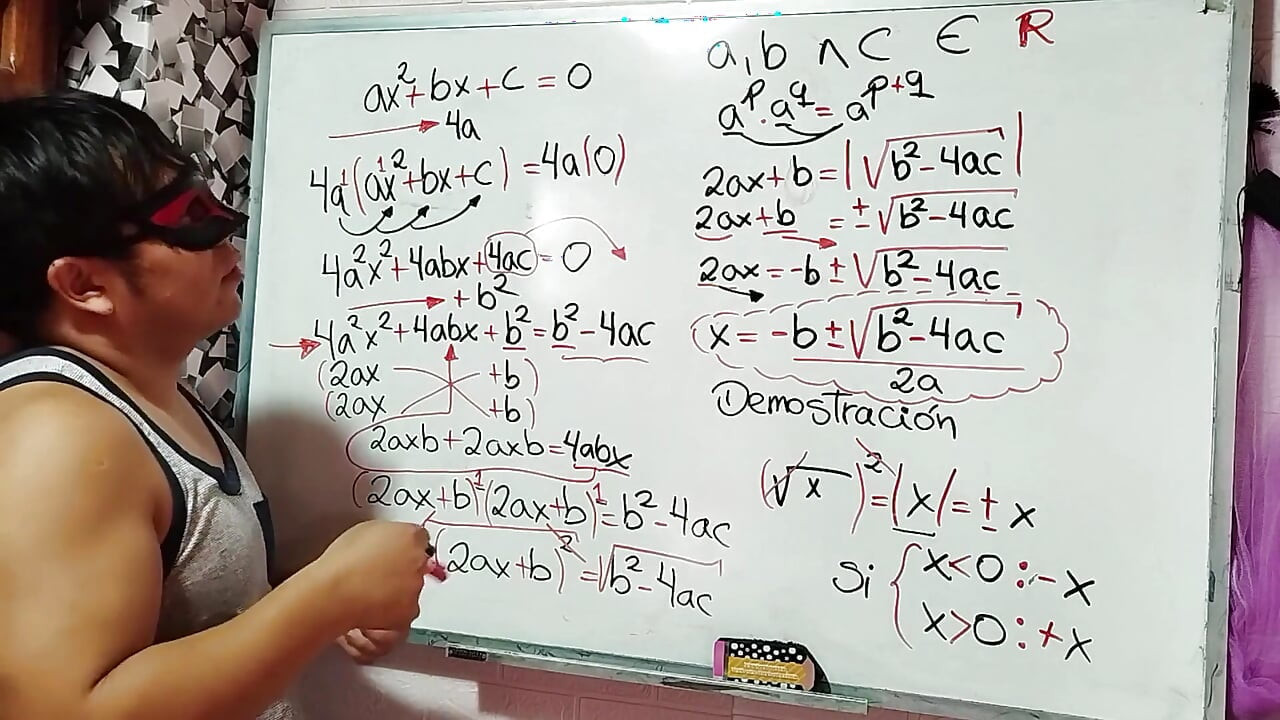 ax²+bx+c=0
4a
4a¹(a¹x²+bx+c)=4a(0)
4a²x²+4abx+4ac=0
+b²
4a²x²+4abx+b²=b²-4ac
(2ax +b)
(2ax +b)
2axb+2axb=4abx
(2ax+b)¹(2ax+b)¹=b²-4ac
(2ax+b)²=√b²-4ac
a,b ∧ C ∈ R
aᵖ·a^q=a^(p+q)
2ax+b=|√b²-4ac|
2ax+b=±√b²-4ac
2ax=-b±√b²-4ac
x=-b±√b²-4ac
2a
Demostración
(√x)²=|x|=±x
Si { x<0:-x
x>0:+x